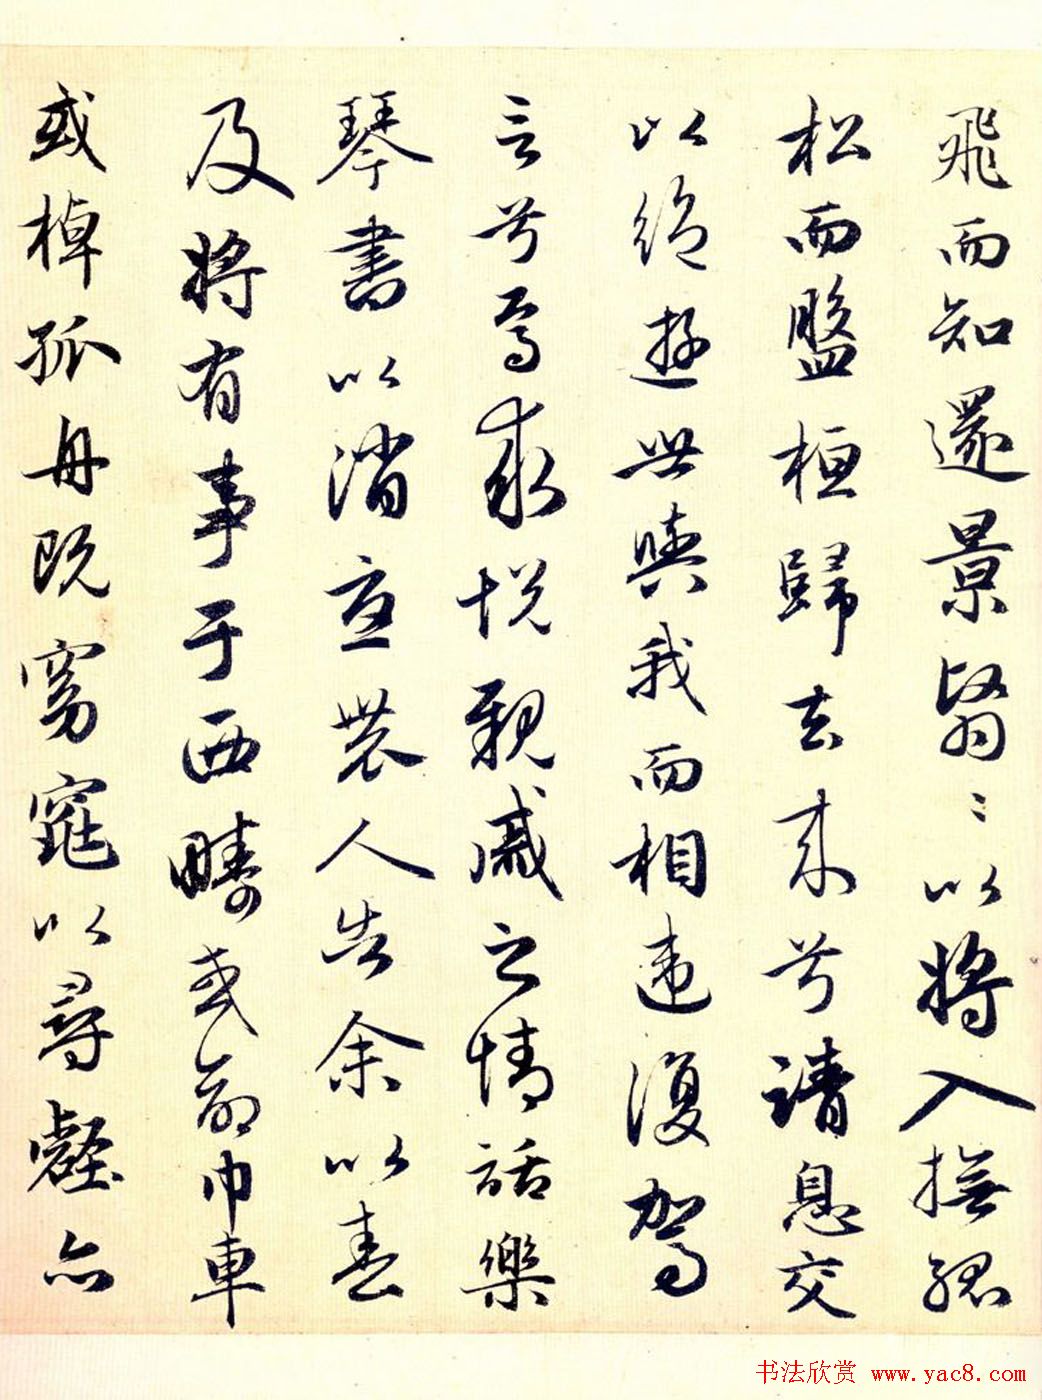 飛而知還景翳〻以將入撫孤
松而盤桓歸去來兮請息交
以絕遊世與我而相違復駕
言兮焉求悅親戚之情話樂
琴書以消憂農人告余以春
及將有事于西疇或命巾車
或棹孤舟既窈窕以尋壑亦
书法欣赏 www.yac8.com